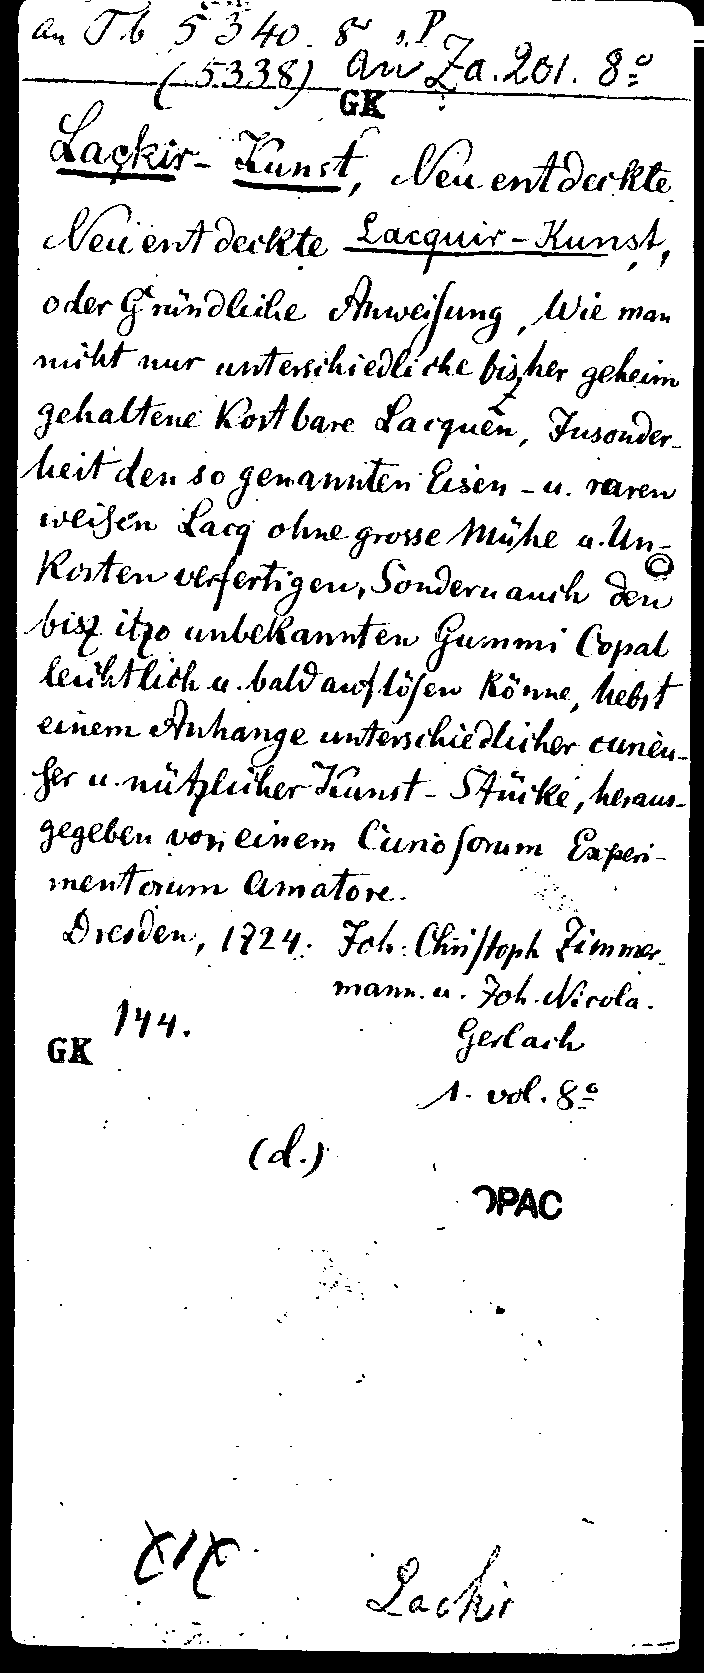 an Tb 5340. 8º „P
(5338) an Za. 201. 8º
GK
Lackir-Kunst, Neu entdeckte
Neu entdeckte Lacquir-Kunst,
oder Gründliche Anweisung, Wie man
nicht nur unterschiedliche biszher geheim
gehaltene Kostbare Lacquen, Insonder-
heit den so genannten Eisen- u. raren
weisen Lacq ohne grosse Mühe u. Un-
Kosten verfertigen, Sondern auch den
bisz itzo unbekannten Gummi Copal
leichtlich u. bald auflösen könne, nebst
einem Anhange unterschiedlicher curieu-
ser u. nützlicher Kunst-Stücke, heraus-
gegeben von einem Curiosorum Experi-
mentorum Amatore.
Dresden, 1724. Joh. Christoph Zimmer-
mann. u. Joh. Nicola.
144.
Gerlach
GK
1. vol. 8º
(d.)
OPAC
Lackir